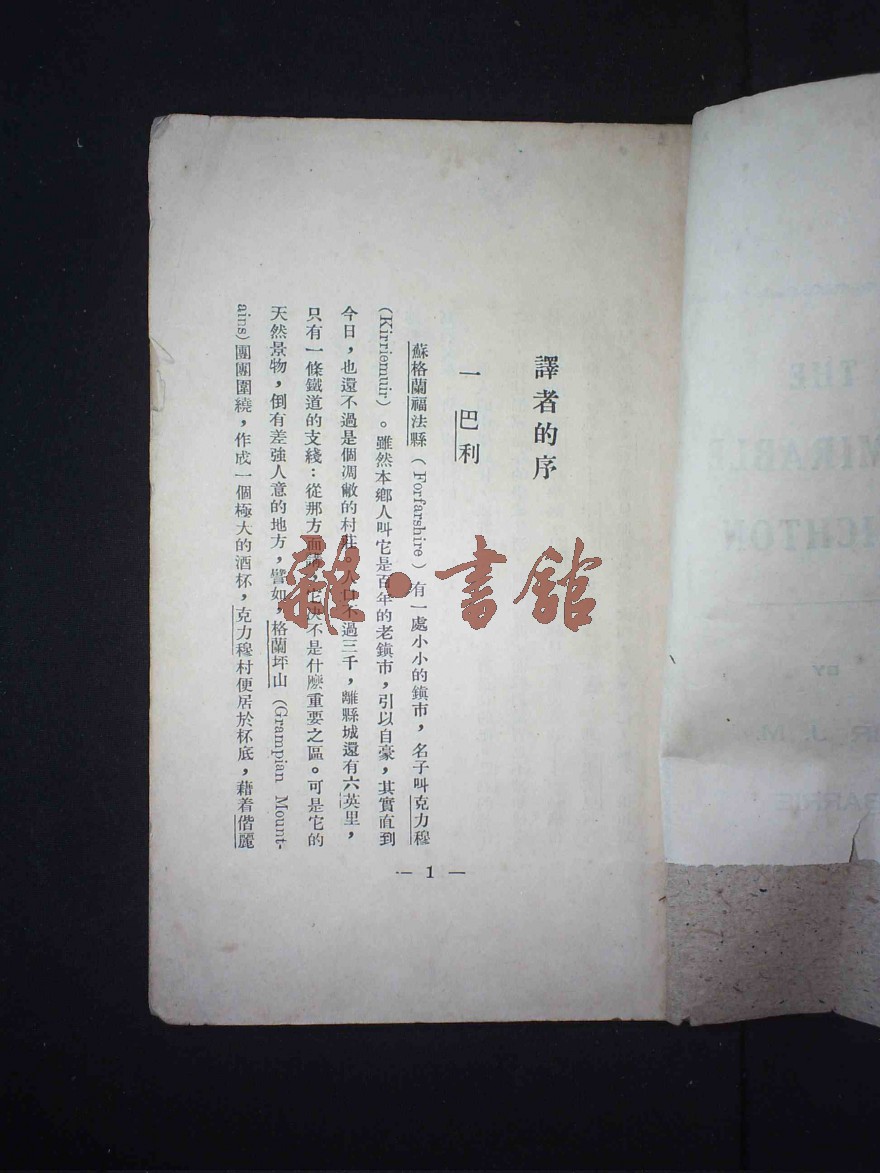 譯者的序
一 巴利
蘇格蘭福法縣(Forfarshire)有一處小小的鎮市，名子叫克力穆
(Kirriemuir)。雖然本鄉人叫它是百年的老鎮市，引以自豪，其實直到
今日，也還不過是個凋敝的村莊。人口不過三千，離縣城還有六英里，
只有一條鐵道的支綫：從那方面 也決不是什麽重要之區。可是它的
天然景物，倒有差強人意的地方，譬如，格蘭坪山(Grampian Mount-
ains)團團圍繞，作成一個極大的酒杯，克力穆村便居於杯底，藉着偕麗
— 1 —
雜·書館
THE
MIRABLE
ICHTON
BY
IR J. M.
BARRIE